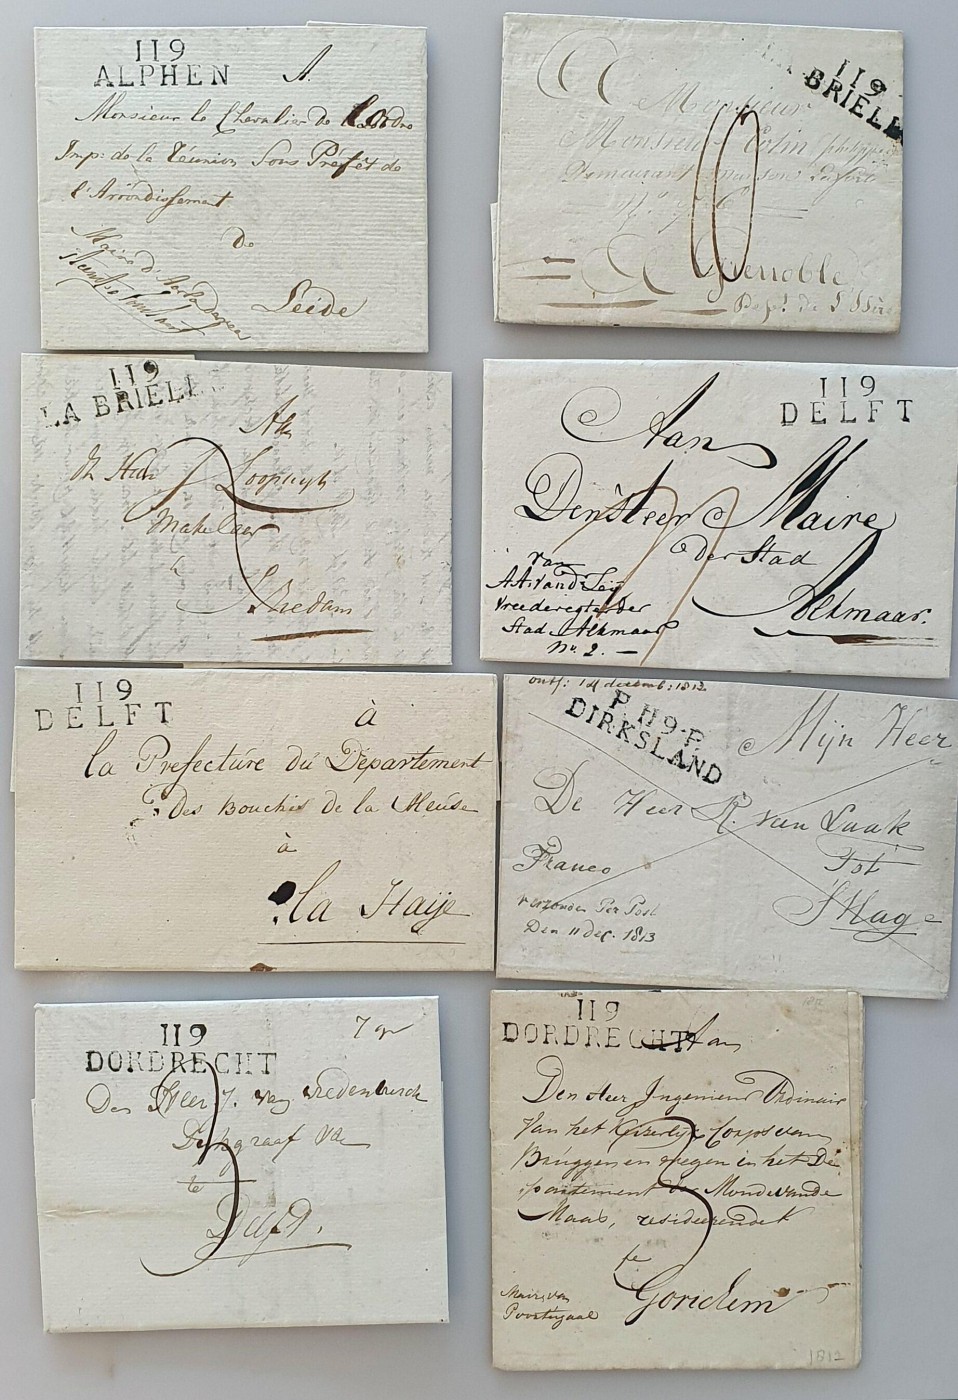 119
ALPHEN
A.
Monsieur le Chevalier de
Imp: de la Réunion Sous Préfét de
l'Arrondissement
De
Leide
119
LA BRIELL
Monsieur
Monsieur Colin philippe
Demeurant
Grenoble
Dept. de l'Isère
119
LA BRIELL
Aan
Makelaar
Schiedam
119
DELFT
Aan
Den Heer Maire
der Stad
Alkmaar.
van
A.A. van der Leij
Vrederegter der
Stad Alkmaar
No. 2. —
119
DELFT
à
la Prefecture du Département
des Bouches de la Meuse
à
la Haije
ontf: 14 decemb: 1813
P.119.P.
DIRKSLAND
Mijn Heer
De Heer R. van Laak
Tot
Franco
S'Hage
verzonden Per Post
Den 11 dec. 1813
119
DORDRECHT
Den Heer J. van Vredenburch
Dijkgraaf van
te
Delft.
119
DORDRECHT
Aan
Den Heer Ingenieur Ordinair
Van het Keizerlijk Corps van
Bruggen en wegen in het De
partement de Monde van de
Maas, resideerende
te
Gorichem
Maire van
Poortugaal
1812